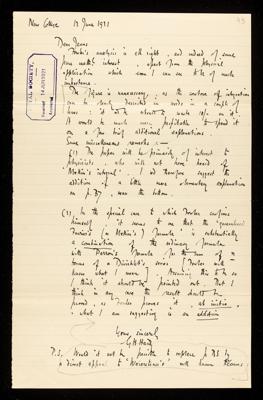 New College 17 June 1921
Dear Jeans
Fowler's analysis is all right, and indeed of some
pure math! interest, apart from the physical
application which even I can see to be of much
importance.
The figure is unnecessary, as the contour of integration
can be described in words in a couple of
lines: it is absurd to waste space on it.
It would be much more profitable to spend it
on a few brief additional explanations.
Some miscellaneous remarks:—
(1) The paper will be primarily of interest to
physicists who will not have heard of
'Mellin's integral'. I should therefore suggest the
addition of a little more elementary explanation
on p. 7, near the bottom.
(2) In the special case to which Fowler confines
himself it seems to me that the 'generalised
Fourier's (or Mellin's) formula' is substantially
a combination of the ordinary formula
with Perron's formula for the sum of n
terms of a Dirichlet's series (Fowler will
know what I mean). Assuming this to be so
I think it should be pointed out. But I
think in any case the result should be
proved, as Fowler proves it, ab initio:
what I am suggesting is an addition.
Yours sincerely
G. H. Hardy
P.S. Would it not be possible to replace p. by
a direct appeal to 'Weierstrass's' well known theorem?
ROYAL SOCIETY